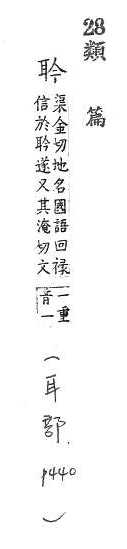 28類篇
聆
渠金切地名國語回祿
信於聆遂又其淹切文
一重
音一
(耳部 P440)